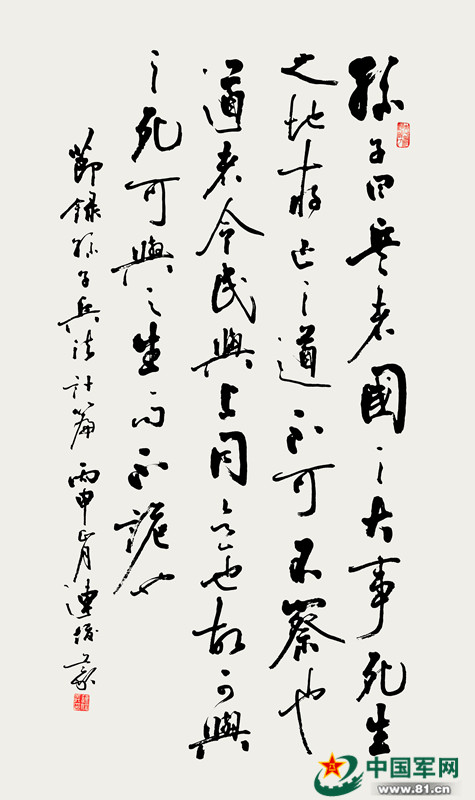 孫子曰兵者國之大事死生
之地存亡之道不可不察也
道者令民與上同意也故可與
之死可與之生而不詭也
節錄孫子兵法計篇 丙申正月 連俊義
中国军网
www.81.cn